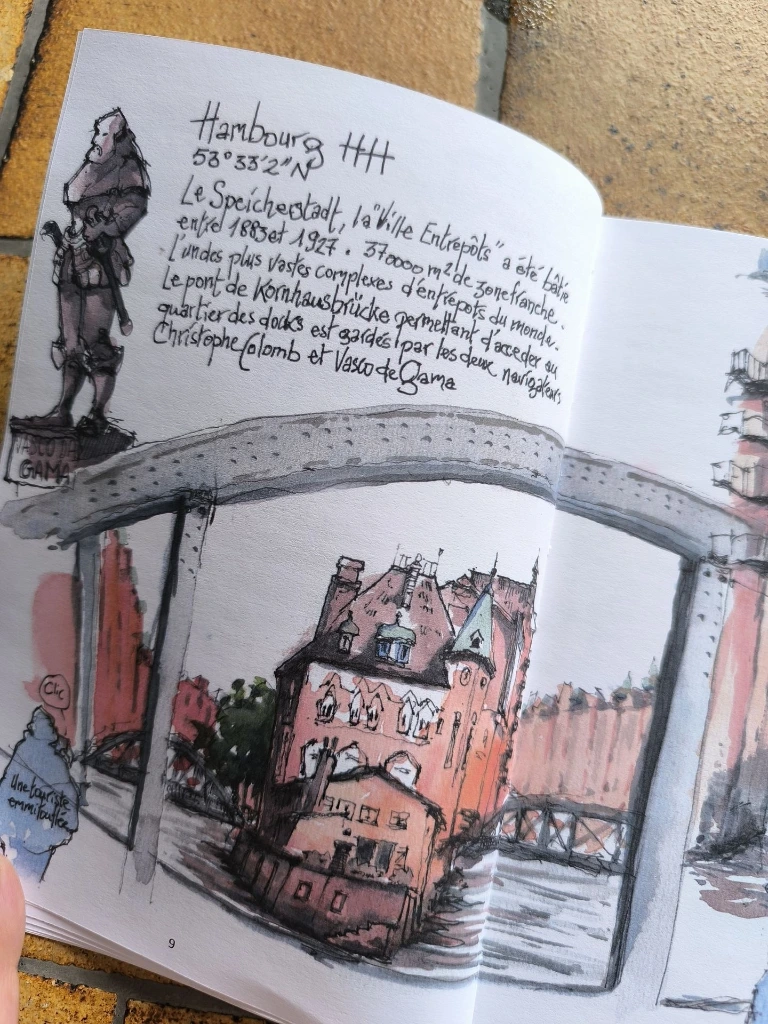 Hambourg HH
53°33'2"N
Le Speicherstadt, la "Ville Entrepôts" a été bâtie
entre 1883 et 1927. 370000 m² de zone franche.
l'un des plus vastes complexes d'entrepôts du monde.
Le pont de Kornhausbrücke permettant d'acceder au
quartier des docks est gardés par les deux navigateurs
Christophe Colomb et Vasco de Gama
VASCO DE
GAMA
Clic
Une touriste
emmitouflée
9